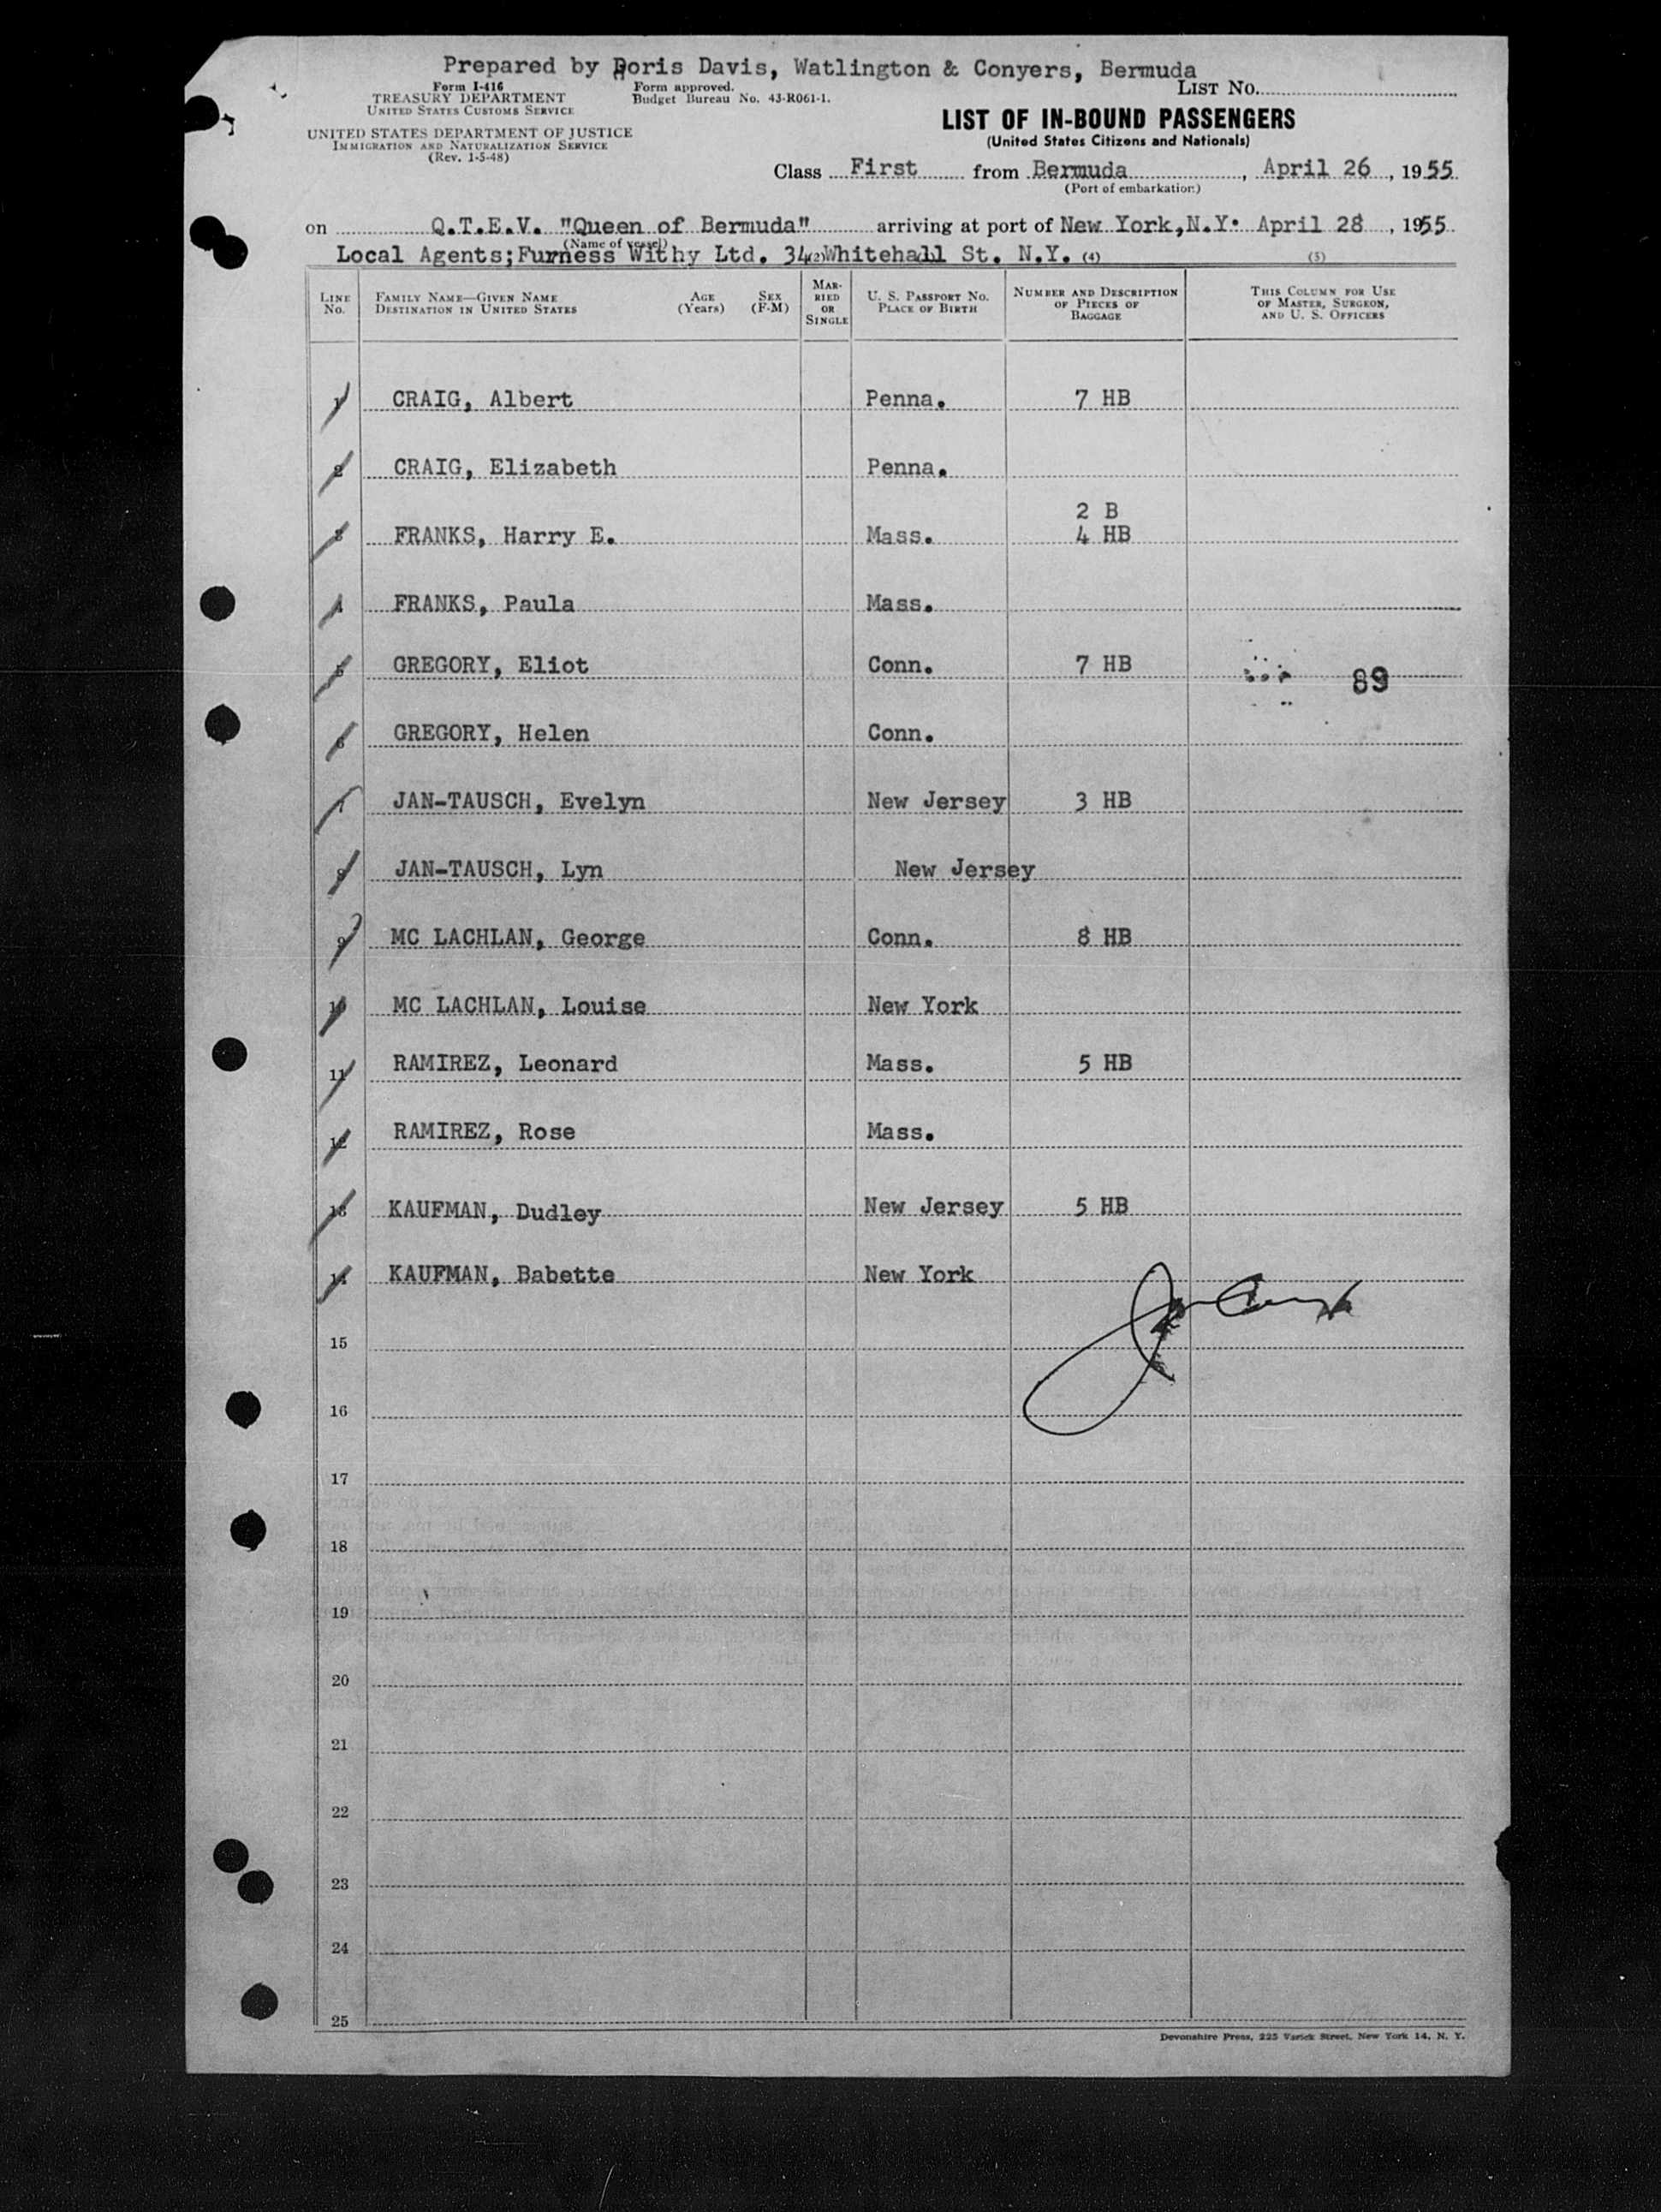 Prepared by Doris Davis, Watlington & Conyers, Bermuda
Form I-416
TREASURY DEPARTMENT
UNITED STATES CUSTOMS SERVICE
UNITED STATES DEPARTMENT OF JUSTICE
IMMIGRATION AND NATURALIZATION SERVICE
(Rev. 1-5-48)
Form approved.
Budget Bureau No. 43-R061-1.
LIST NO.
LIST OF IN-BOUND PASSENGERS
(United States Citizens and Nationals)
Class First from Bermuda, April 26, 1955
(Port of embarkation)
on Q.T.E.V. "Queen of Bermuda" arriving at port of New York, N.Y. April 28, 1955
(Name of vessel)
Local Agents;Furness Withy Ltd. 34 Whitehall St. N.Y.
(2) (4) (5)
LINE NO. FAMILY NAME—GIVEN NAME DESTINATION IN UNITED STATES AGE (Years) SEX (F-M) MARRIED OR SINGLE U. S. PASSPORT NO. PLACE OF BIRTH NUMBER AND DESCRIPTION OF PIECES OF BAGGAGE THIS COLUMN FOR USE OF MASTER, SURGEON, AND U. S. OFFICERS
1 CRAIG, Albert Penna. 7 HB
2 CRAIG, Elizabeth Penna.
2 B
3 FRANKS, Harry E. Mass. 4 HB
4 FRANKS, Paula Mass.
5 GREGORY, Eliot Conn. 7 HB 89
6 GREGORY, Helen Conn.
7 JAN-TAUSCH, Evelyn New Jersey 3 HB
8 JAN-TAUSCH, Lyn New Jersey
9 MC LACHLAN, George Conn. 8 HB
10 MC LACHLAN, Louise New York
11 RAMIREZ, Leonard Mass. 5 HB
12 RAMIREZ, Rose Mass.
13 KAUFMAN, Dudley New Jersey 5 HB
14 KAUFMAN, Babette New York
15
16
17
18
19
20
21
22
23
24
25
Devonshire Press, 225 Varick Street, New York 14, N. Y.